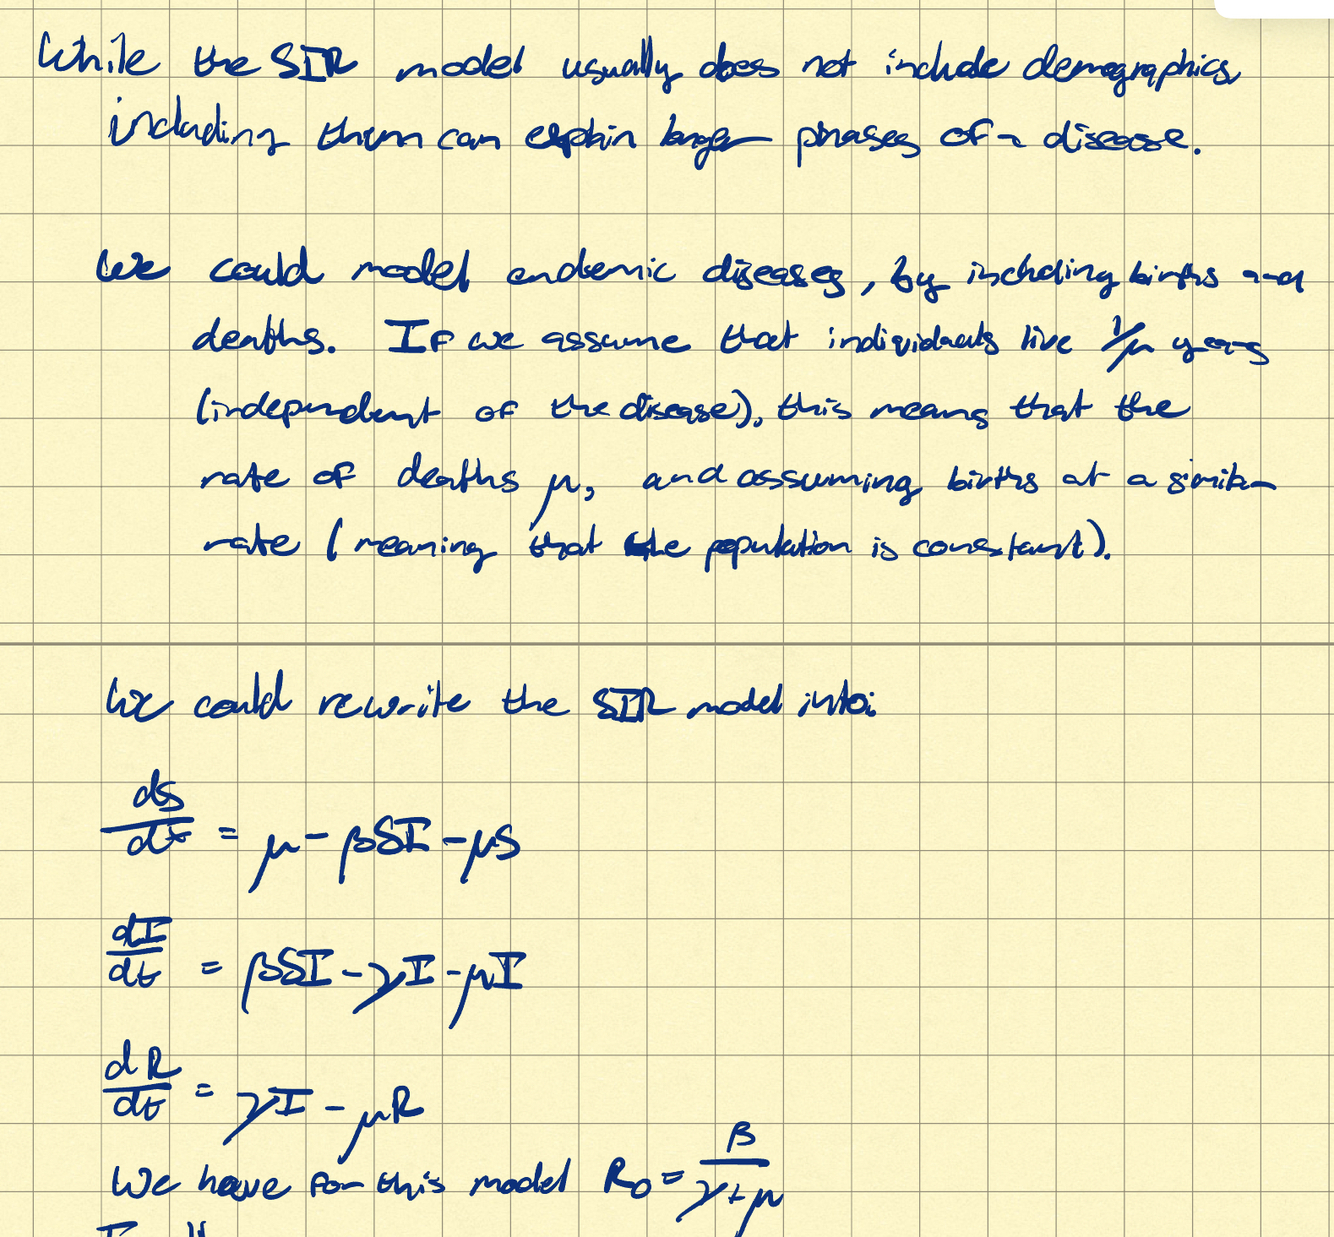 While the SIR model usually does not include demographics
including them can explain longer phases of a disease.
We could model endemic diseases, by including births and
deaths. If we assume that individuals live 1/μ years
(independent of the disease), this means that the
rate of deaths μ, and assuming births at a similar
rate (meaning that the population is constant).
We could rewrite the SIR model into:
dS/dt = μ - βSI - μS
dI/dt = βSI - γI - μI
dR/dt = γI - μR
We have for this model R₀ = β/(γ+μ)